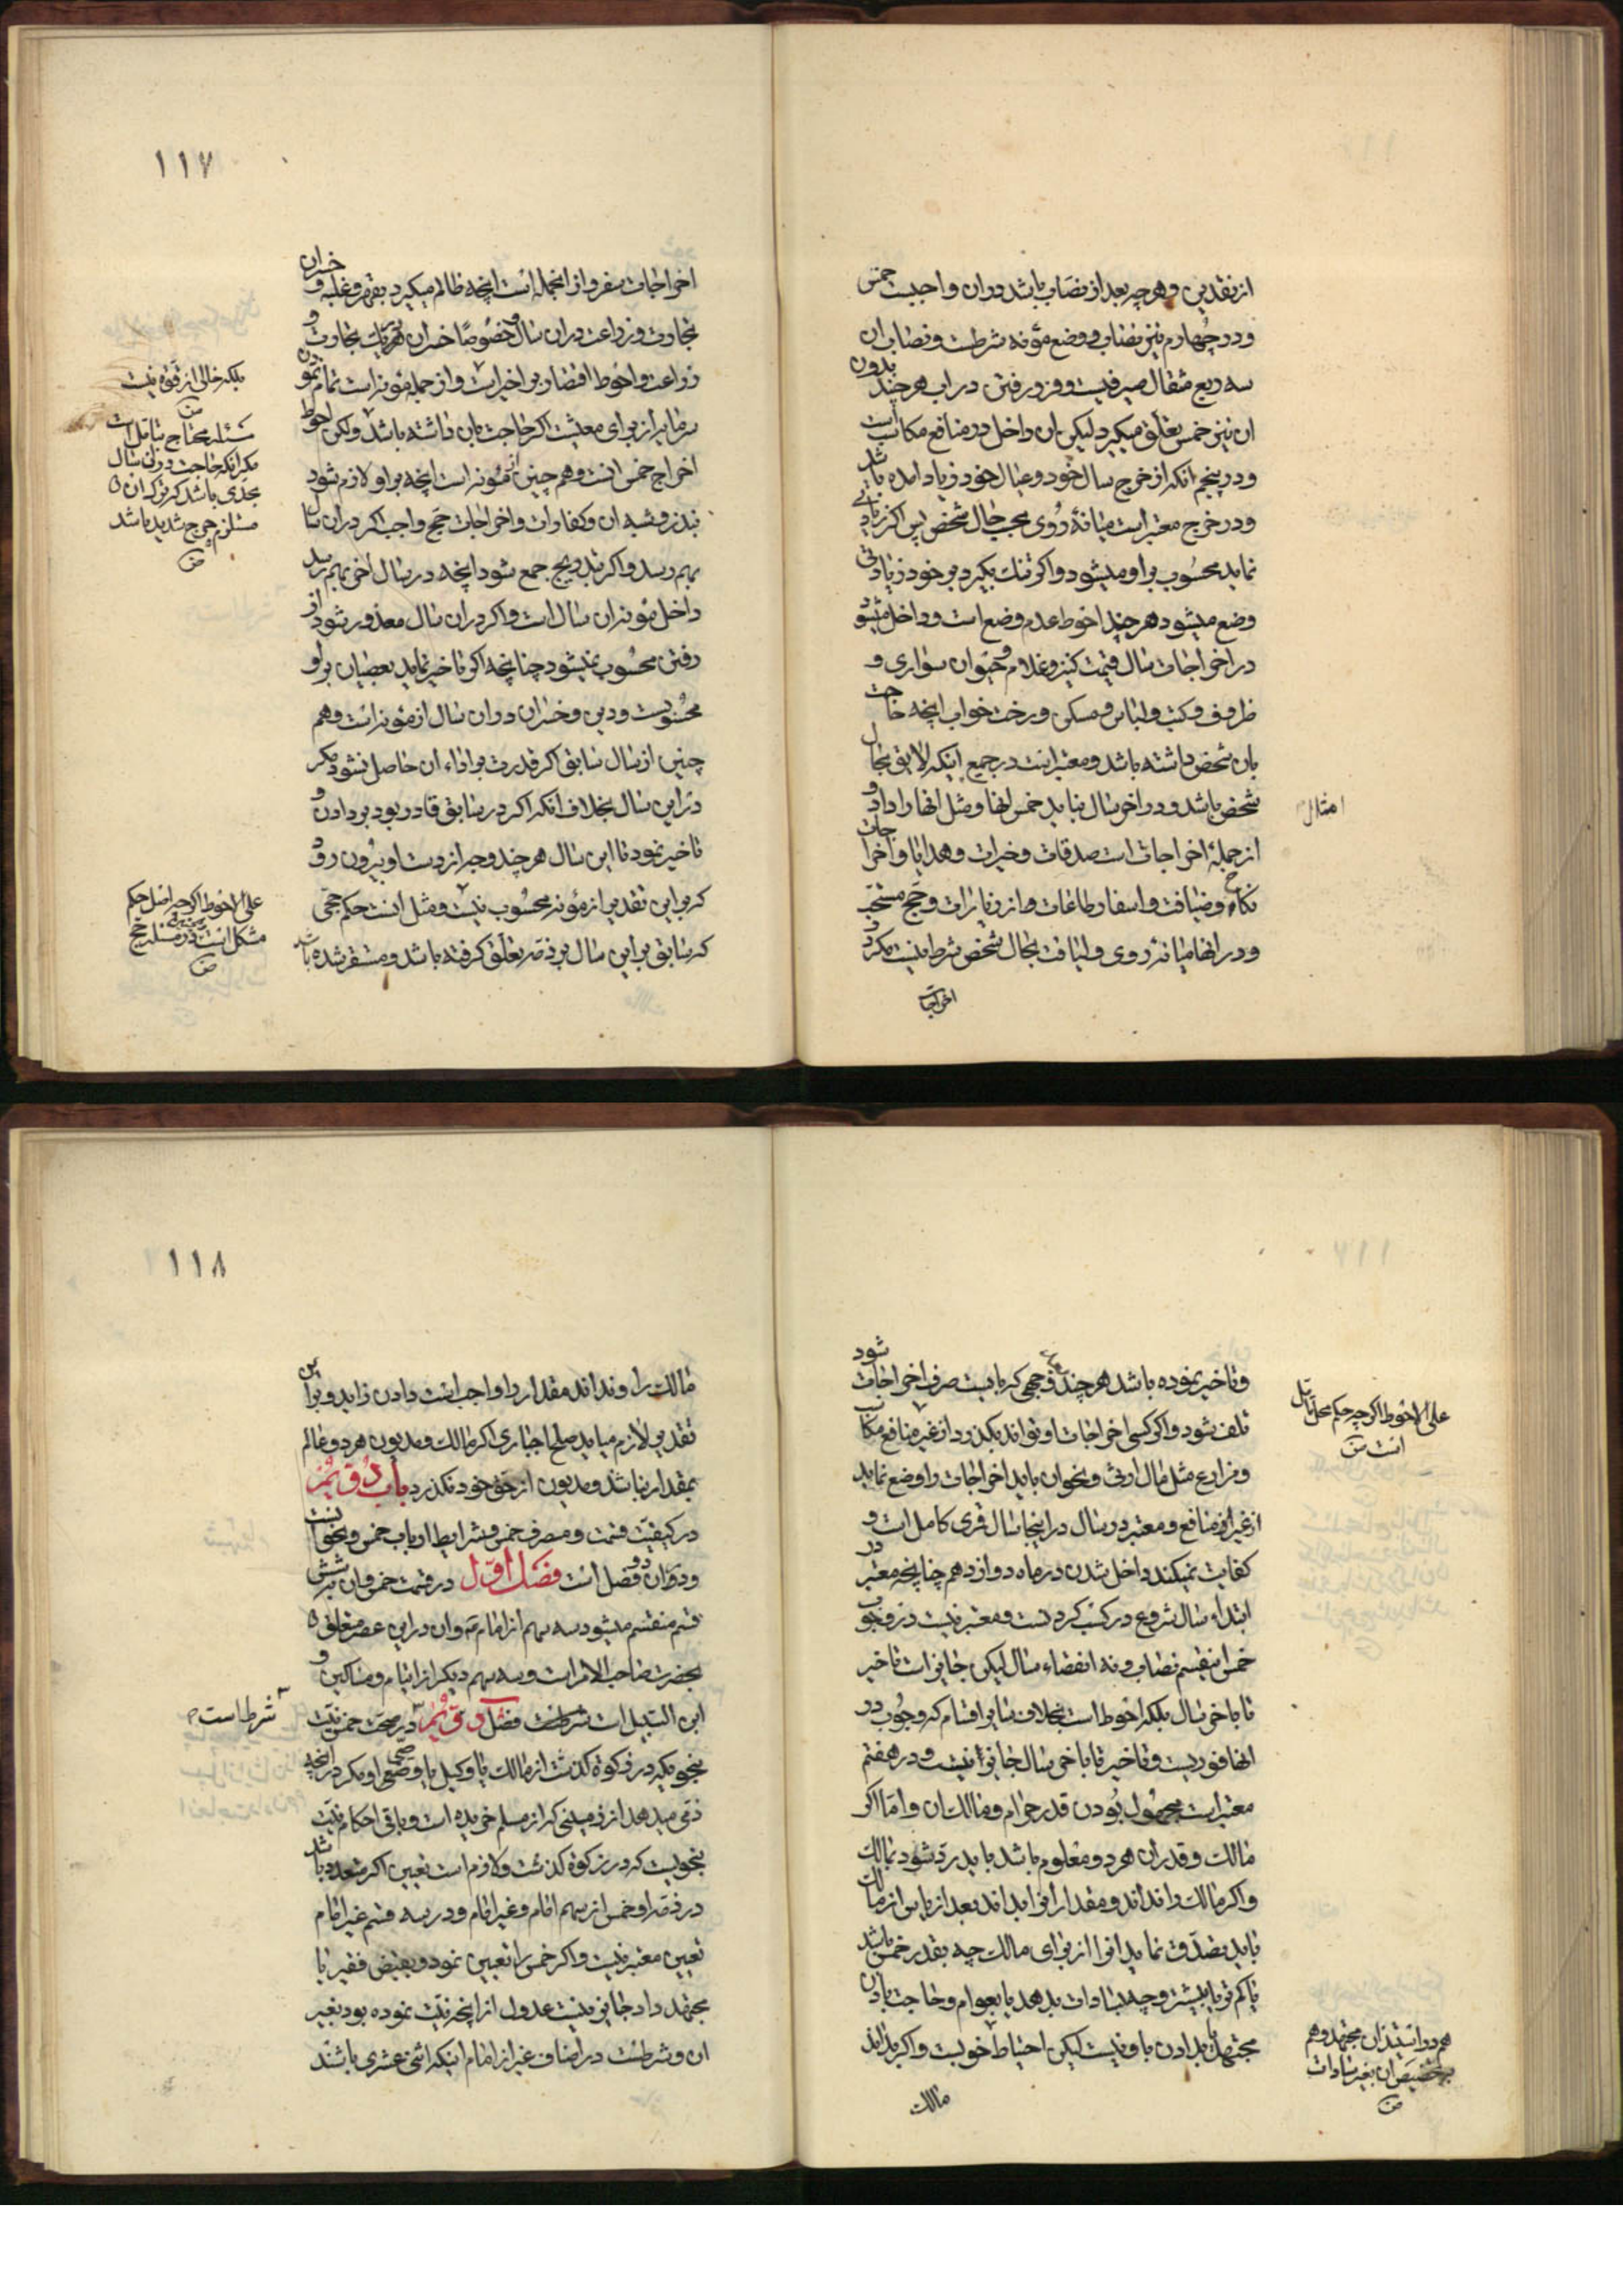 از نقدین و هر چه بعد از نصاب باشد در ان واجبست خمس
و در چهارم نیز نصاب و وضع مؤنه شرطست و نصاب ان
سه ربع مثقال صیرفیست و فرو رفتن در اب هر چند بدون
ان نیز خمس تعلق میگیرد لیکن ان داخل در منافع مکاسب است
و در پنجم انکه از خرج سال خود و عیال خود زیاد امده باشد
و در خرج معتبر است میانه روی بحسب حال شخص پس اکر زیادتی
نماید محسوب بر او میشود و اکر تنک بگیرد بر خود زیادتی
وضع میشود هر چند احوط عدم وضع است و داخل میشود
در اخراجات سال قیمت کنیز و غلام و حیوان سواری و
ظروف و کتب و لباس و مسکن و رخت خواب انچه حاجت
بان شخص داشته باشد و معتبر است در جمیع اینکه لایق بحال
شخص باشد و در اخر سال نباید خمس انها و مثل انها را داد و
امثال
از جملهٔ اخراجات است صدقات و خیرات و هدایا و اخراجات
نکاح و ضیافت و اسفار طاعات و از زیارات و حج مستحب
و در انها میانه روی و لیاقت بحال شخص شرط نیست مکر در
اخراجات
۱۱۷
اخراجات سفر و از انجمله است انچه ظالم میگیرد بقهر و غلبه و خسران
تجارت و زراعت در ان سال و خصوصا خسران هر یک بتجارت و
زراعت و احوط اقتصار بر اخیر است و از جمله مؤنه است تمام نمودن
بلکه خالی از قوة نیست
سرمایه از برای معیشت اکر حاجت بان داشته باشد ولکن احوط
مسئله محتاج بتامل است
مکر انکه حاجت در ان سال
بحدی باشد که ترک ان
مستلزم حرج شدید باشد
اخراج خمس است و هم چنین از مؤنه است انچه بر او لازم شود
بنذر و شبه ان و کفارات و اخراجات حج واجب اکر در ان سال
بهم رسد و اکر بتدریج جمع شود انچه در سال اخر بهم رسد
داخل مؤنه ان سال است و اکر در ان سال معذور شود از
رفتن محسوب نمیشود چنانچه اکر تاخیر نماید بعصیان بر او
محسوبست و دین و خسران در ان سال از مؤنه است و هم
چنین از سال سابق اکر قدرت بر اداء ان حاصل نشود مکر
در این سال بخلاف انکه اکر در سابق قادر بود بر دادن و
تاخیر نمود تا این سال هر چند وجه از دست او بیرون رود
که بر این تقدیر از مؤنه محسوب نیست و مثل انست حکم حجی
علی الاحوط اکر چه اصل حکم
مشکل است در مسئله حج
که سابق بر این سال بر ذمه تعلق کرفته باشد و مستقر شده باشد
و تاخیر نموده باشد هر چند وجهی که بایست صرف اخراجات شود
تلف شود و اکر کسی اخراجات او تواند بکذرد از غیر منافع مکاسب
علی الاحوط اکر چه حکم محل تامل
است
و مزارع مثل مال ارثی و نحوان باید اخراجات را وضع نماید
از غیر از منافع و معتبر در سال در اینجا سال قمری کامل است و
کفایت نمیکند داخل شدن در ماه دوازدهم چنانچه معتبر در
ابتداء سال شروع در کسب کردنست و معتبر نیست در وجوب
خمس اینقسم نصاب و نه انقضاء سال لیکن جایز است تاخیر
تا باخر سال بلکه احوط است بخلاف سایر اقسام که وجوب در
انها فوریست و تاخیر تا باخر سال جایز نیست و در هفتم
معتبر است مجهول بودن قدر حرام و مالک ان و اما اکر
مالک و قدر ان هر دو معلوم باشد باید رد شود بمالک
و اکر مالک را نداند و مقدار انرا بداند بعد از یاس از مالک
باید تصدق نماید انرا از برای مالک چه بقدر خمس باشد
یا کمتر یا بیشتر و چه بسادات بدهد یا بعوام و حاجت باذن
مجتهد یا بدادن باو نیست لیکن احتیاط خوبست و اکر بداند
هم در استیذان مجتهد و هم
در تخصیص ان بغیر سادات
مالک
۱۱۸
مالک را و نداند مقدار را واجب است دادن زاید و بر این
تقدیر لازم میاید صلح اجباری اکر مالک و مدیون هر دو عالم
بمقدار نباشد و مدیون از حق خود نکذرد باب دویم
در کیفیت قسمت و مصرف خمس و شرایط ارباب خمس و نحوانست
و در ان دو فصل است فصل اول در قسمت خمس و ان بر شش
قسم منقسم میشود سه سهم از امام ع و ان در این عصر متعلق
بحضرت صاحب الامر است و سه سهم دیکر از ایتام و مساکین و
ابن السبیل است فصل دویم در صحت خمس نیت
شرط است
بنحویکه در زکوة کذشت از مالک یا وکیل یا وصی او مکر در انچه
ذمی میدهد از زمینی که از مسلم خریده است و باقی احکام نیت
بنحویست که در زکوة کذشت و لازم است تعیین اکر متعدد باشد
در ذمه او خمس از سهم امام و غیر امام و در سه قسم غیر امام
تعیین معتبر نیست و اکر خمس را تعیین نمود و بقبض فقیر یا
مجتهد داد جایز نیست عدول از انچه نیت نموده بود بغیر
ان و شرطست در اصناف غیر از امام اینکه اثنی عشری باشند